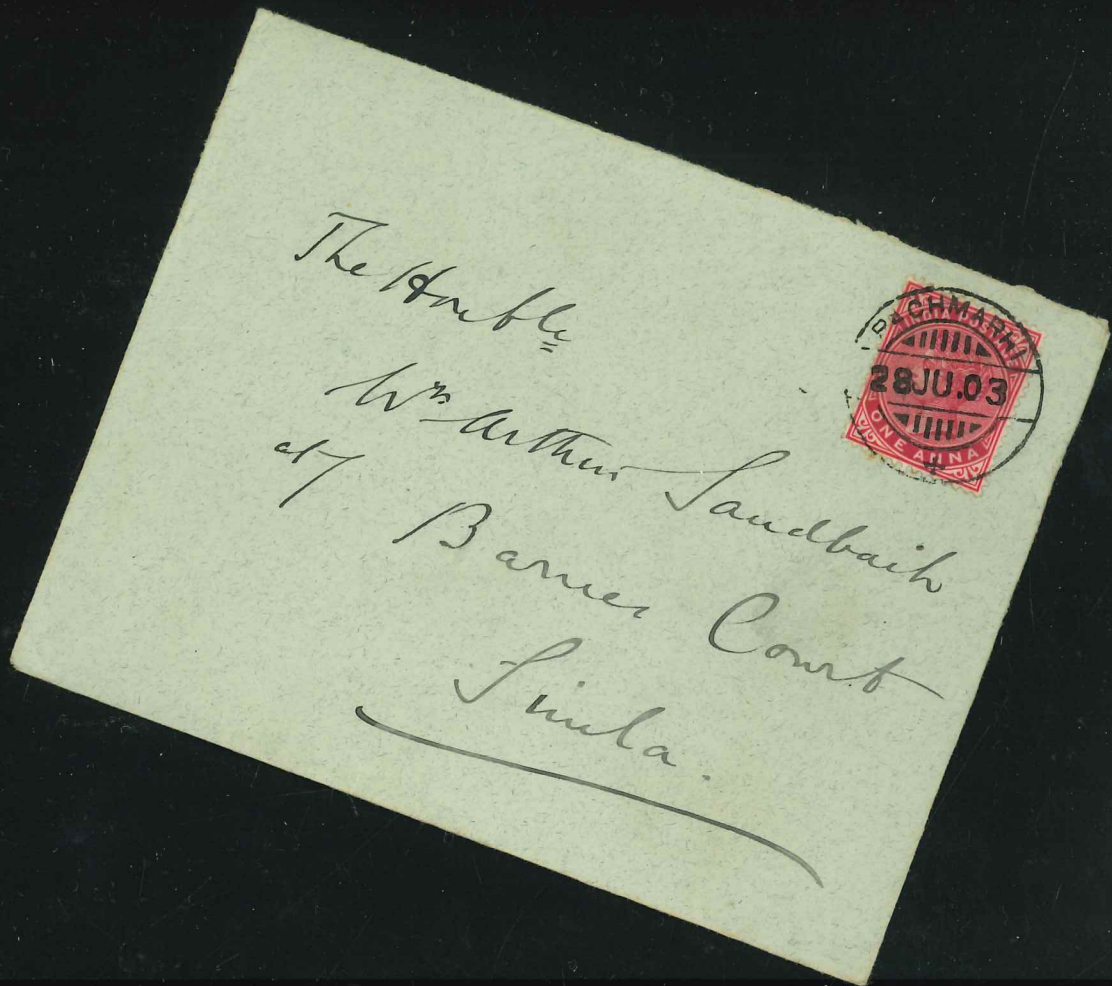 The Honble
Mrs Arthur Sandbach
at
Barnes Court
Simla.
PACHMARHI
28JU.03
ONE ANNA